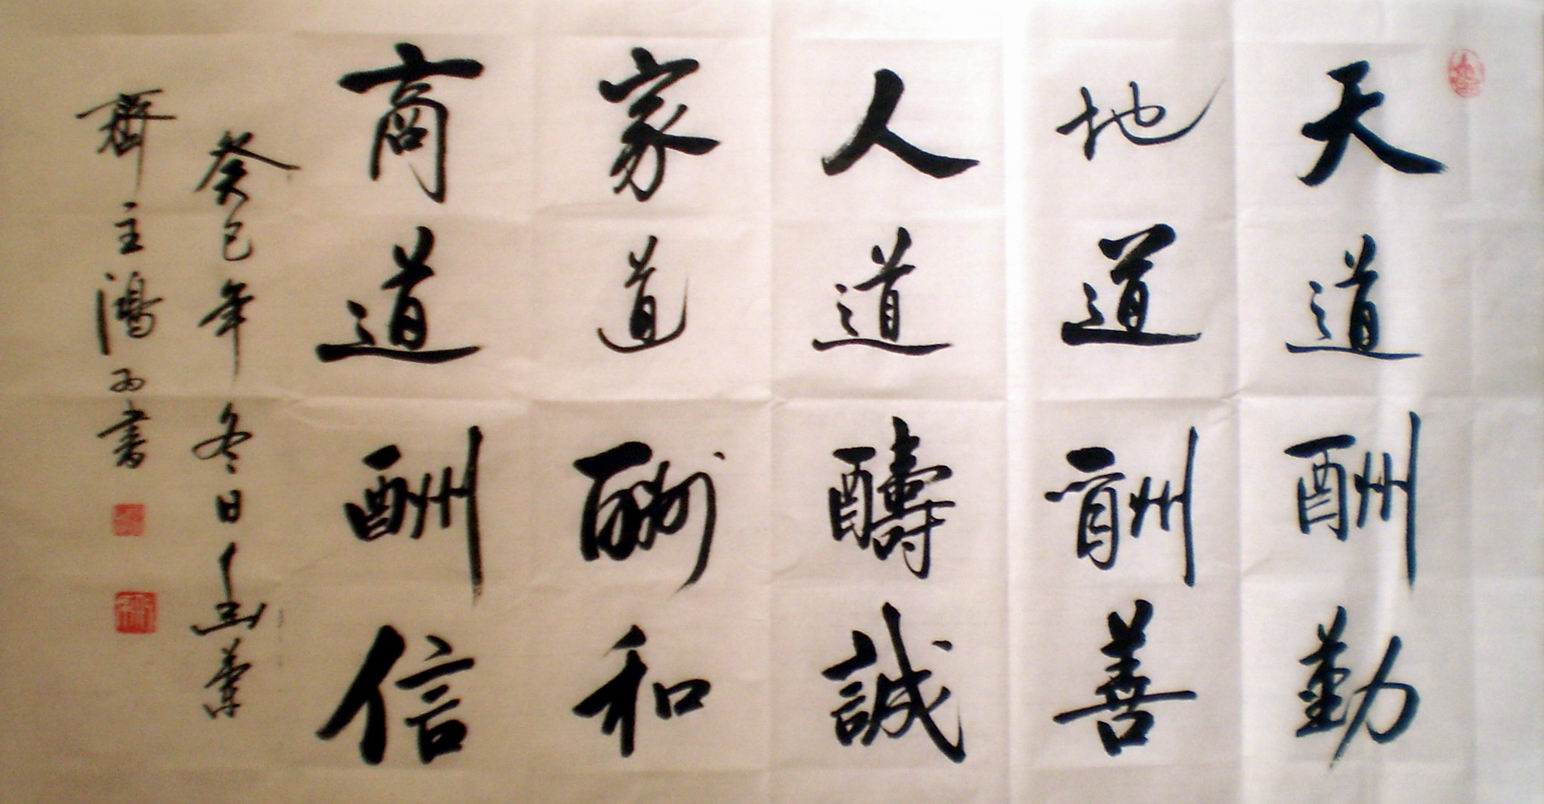 天道酬勤
地道酬善
人道醻誠
家道酬和
商道酬信
癸巳年冬日
齋主鴻書